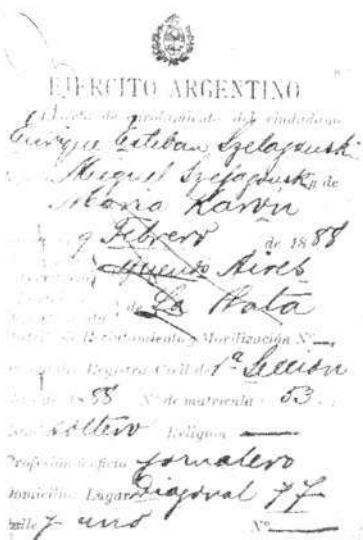 EJERCITO ARGENTINO
de enrolamiento del ciudadano
Enrique Esteban Szelagouski
Miguel Szelagousk y de
Maria Karvn
9 Febrero de 1888
Buenos Aires
de La Plata
de Reclutamiento y Movilización Nº —
del Registro Civil de 1ª Sección
1888 Nº de matrícula 53
soltero Religion —
Profesión ú oficio jornalero
Domicilio: Lugar Diagonal 77
calle 7 uno Nº —